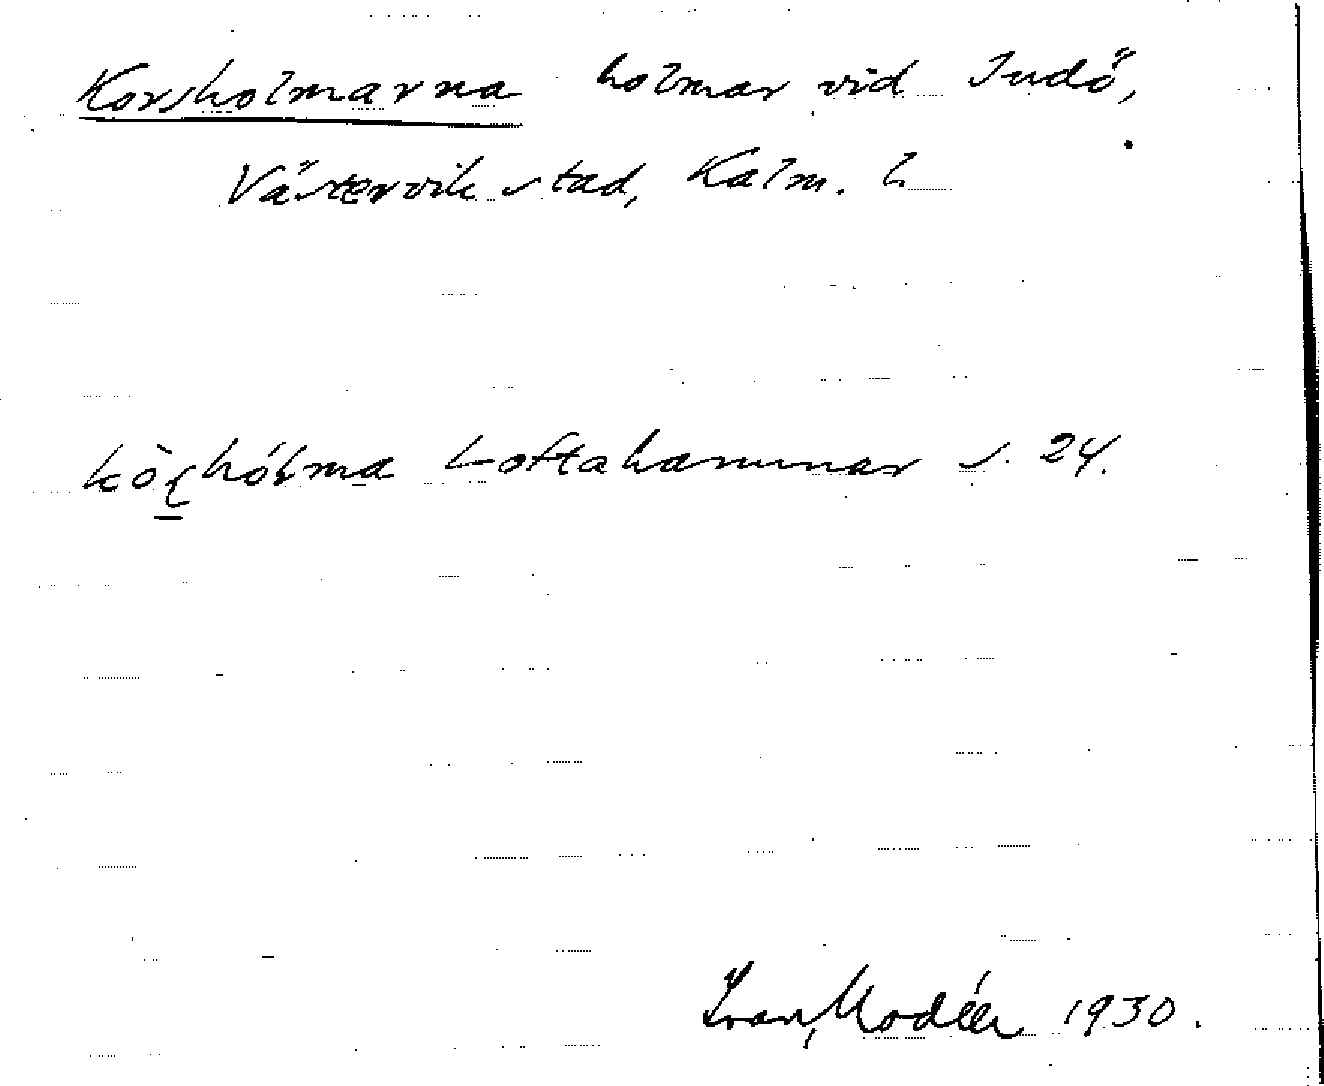 Korsholmarna holmar vid Judö,
Västervik stad, Kalm. l.
Loftahammar s. 24.
Ivar Modéer 1930.